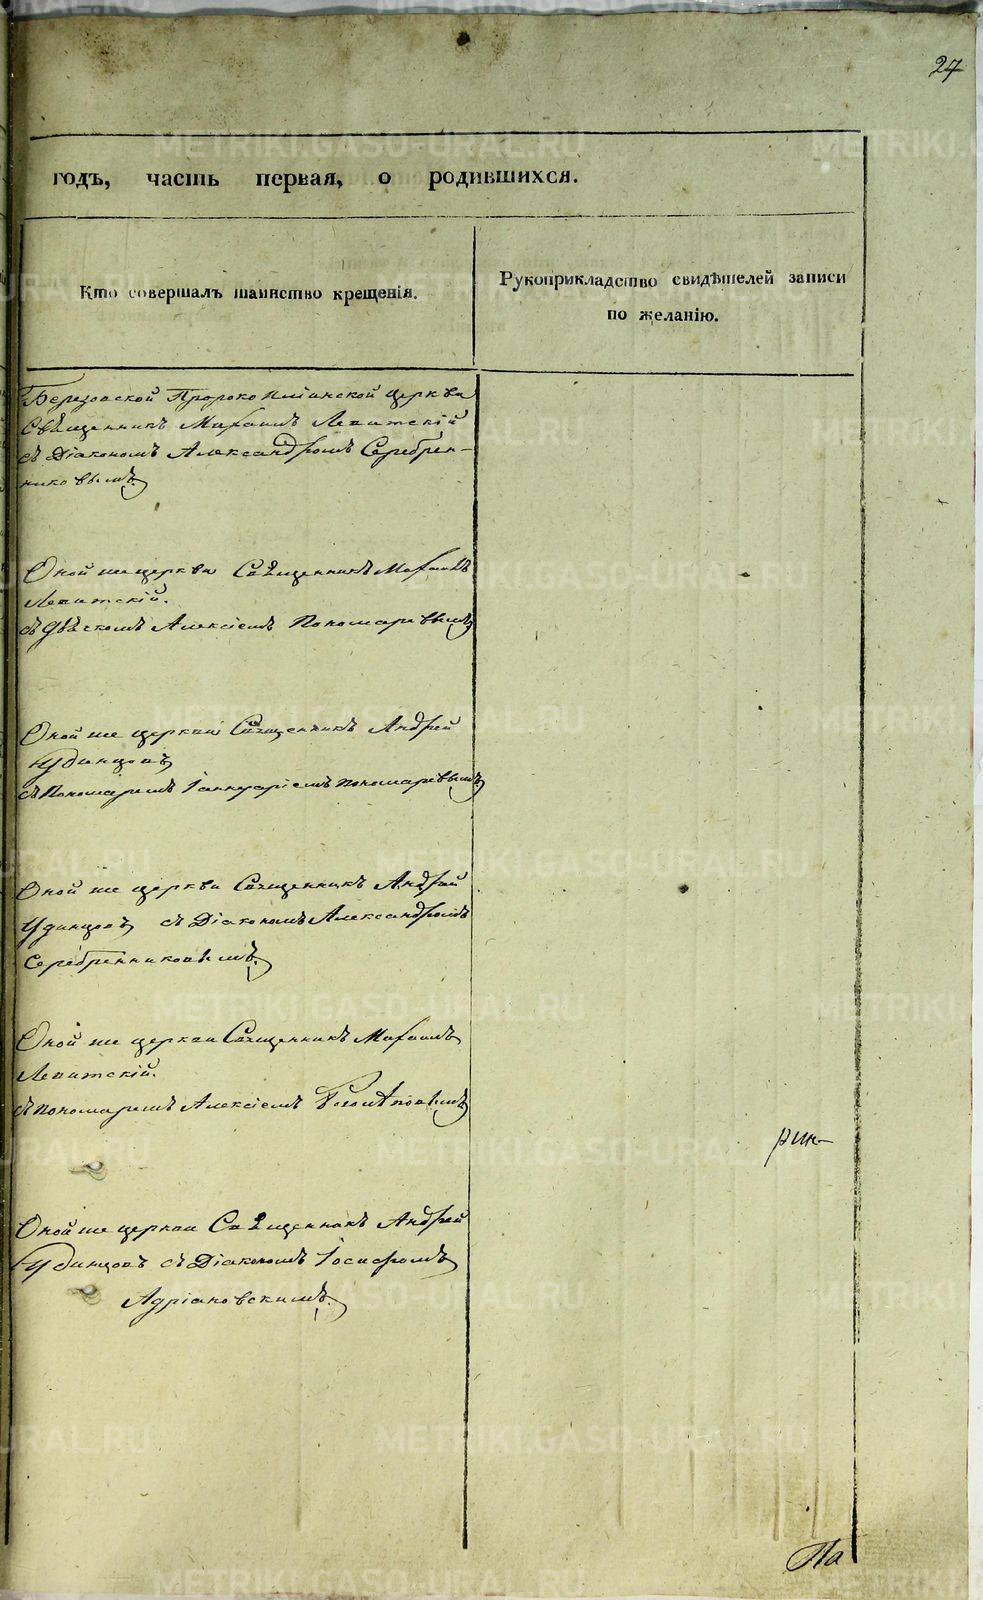 27
годъ, часть первая, о родившихся.
Кто совершалъ таинство крещенія.
Рукоприкладство свидѣтелей записи
по желанію.
Березовской Пророко Ильинской церкви
Священникъ Михаилъ Левитскій
съ Діакономъ Александромъ Серебрен-
никовымъ.
Оной же церкви Священникъ Михаилъ
Левитскій.
съ Дьячкомъ Алексіемъ Пономаревымъ
Оной же церкви Священникъ Андрей
Удинцовъ
съ Пономаремъ Іаннуаріемъ Пономаревымъ
Оной же церкви Священникъ Андрей
Удинцовъ съ Діакономъ Александромъ
Серебренниковымъ.
Оной же церкви Священникъ Михаилъ
Левитскій.
съ Пономаремъ Алексіемъ
Оной же церкви Священникъ Андрей
Удинцовъ съ Діакономъ Іосифомъ
Адріановскимъ.
По
METRIKI.GASO-URAL.RU